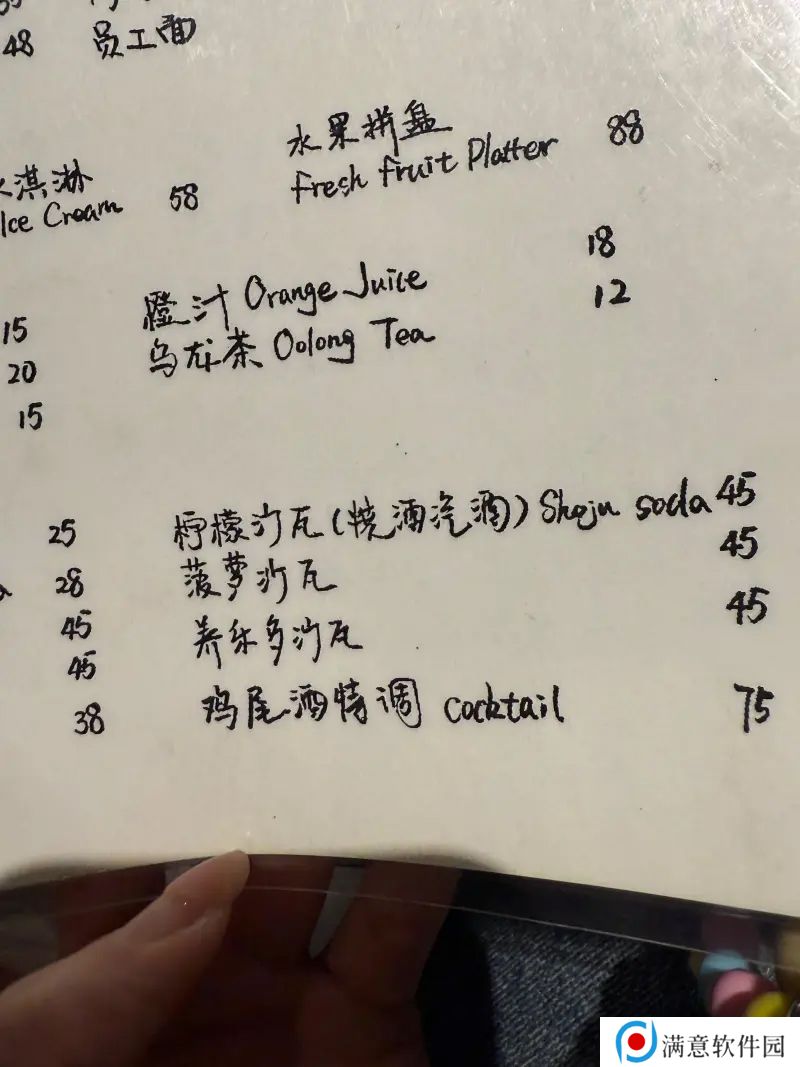 48 员工面
水果拼盘 88
Fresh fruit Platter
淇淋 58
Ice Cream
18
橙汁 Orange Juice
12
15 乌龙茶 Oolong Tea
20
15
25 柠檬沙瓦(烧酒汽酒) Shoju soda 45
28 菠萝沙瓦 45
45 养乐多沙瓦 45
45
38 鸡尾酒特调 cocktail 75
满意软件园